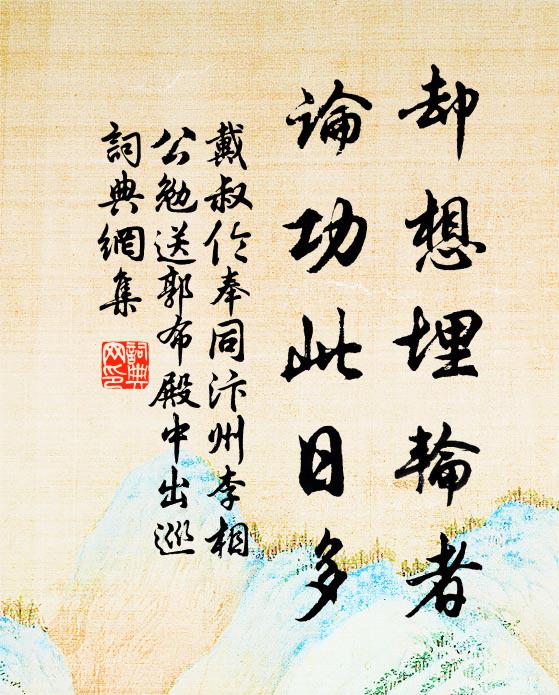 却想埋輪者
論功此日多
戴叔伦奉同汴州李相
公勉送郭布殿中出巡
詞典網集
詞典网印